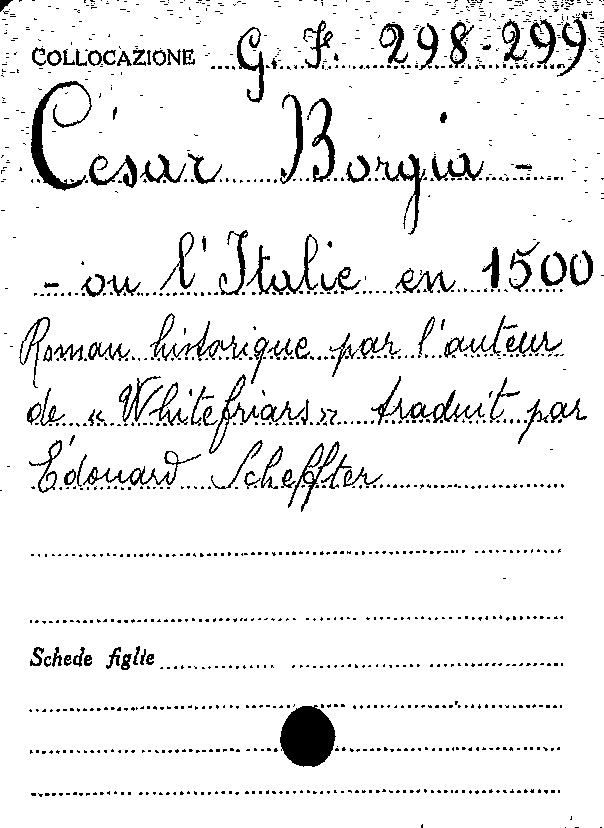 COLLOCAZIONE G. F. 298-299
César Borgia -
- ou l'Italie en 1500
Roman historique par l'auteur
de « Whitefriars » traduit par
Édouard Scheffter
Schede figlie